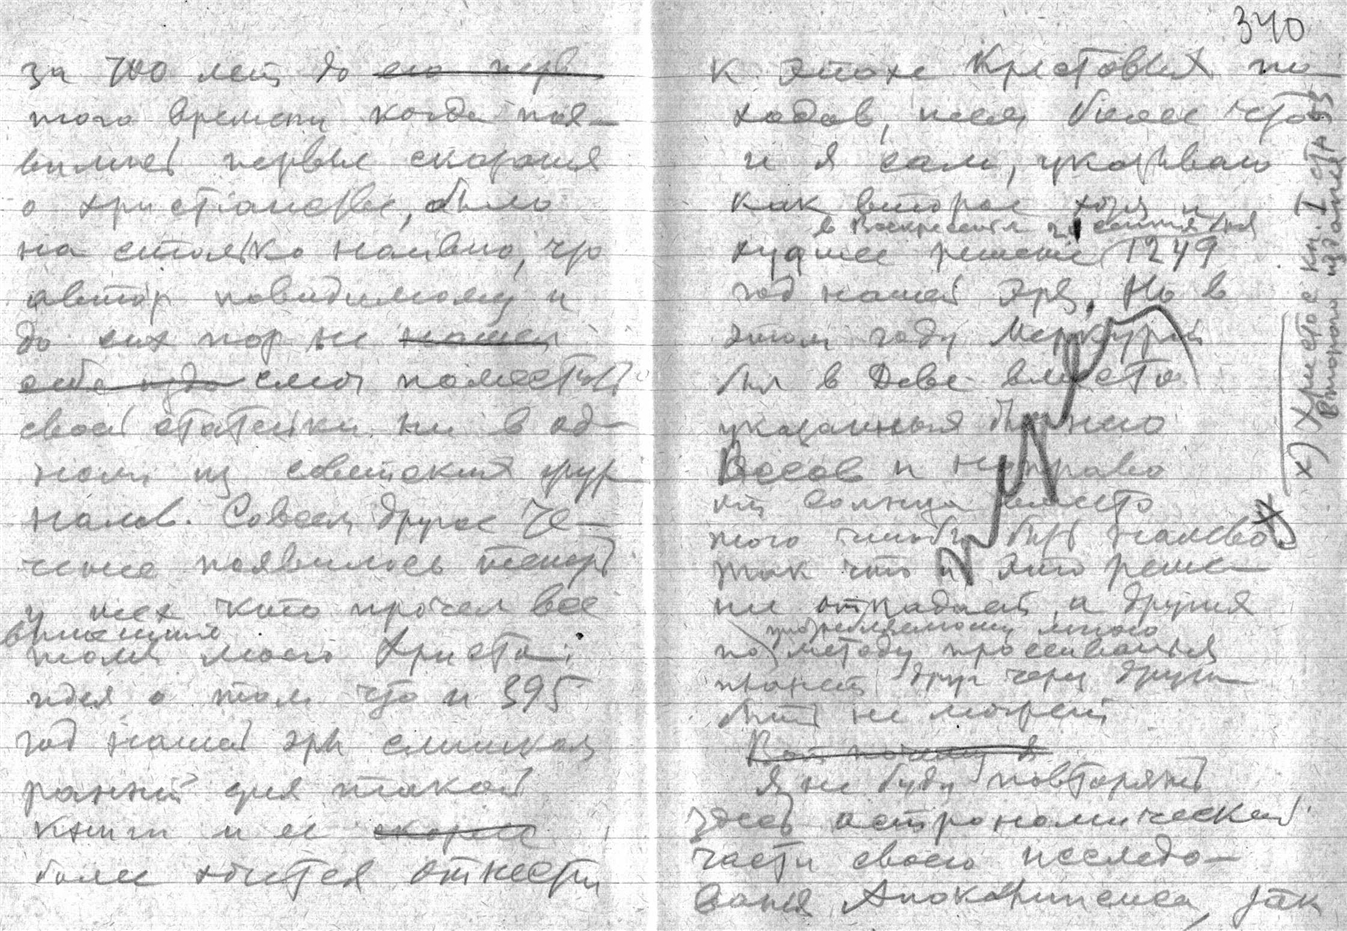 за 700 лет до его перв
того времени когда поя-
вились первые сказания
о христианстве, было
на столько наивно, что
автор повидимому и
до сих пор не нашел
себе смог поместить
своей статейки ни в од-
ном из советских жур
налов. Совсем другое
появилось теперь
у тех кто прочел все
вышедшие
тома моего Христа:
идея о том что и 395
год нашей эры слишком
ранний для такой
книги и ее скорее
более хочется отнести
340
к эпохе Крестовых по
ходов, тем более что
и я сам, указываю
как второе хотя и
в Воскресенье сентября
худшее решение 1249
год нашей эры. Но в
этом году Меркурий
был в Деве вместо
указанных
Весов и направо
от солнца вместо
того чтобы быть налево x)
так что и это реше-
ние отпадает, а других
употребляемому мною
по методу просеивания
планет друг через друга
быть не может
Вот почему я
Я не буду повторять
здесь астрономической
части своего исследо-
вания Апокалипсиса, так
x) Христос Кн. I стр 53
Второго издания